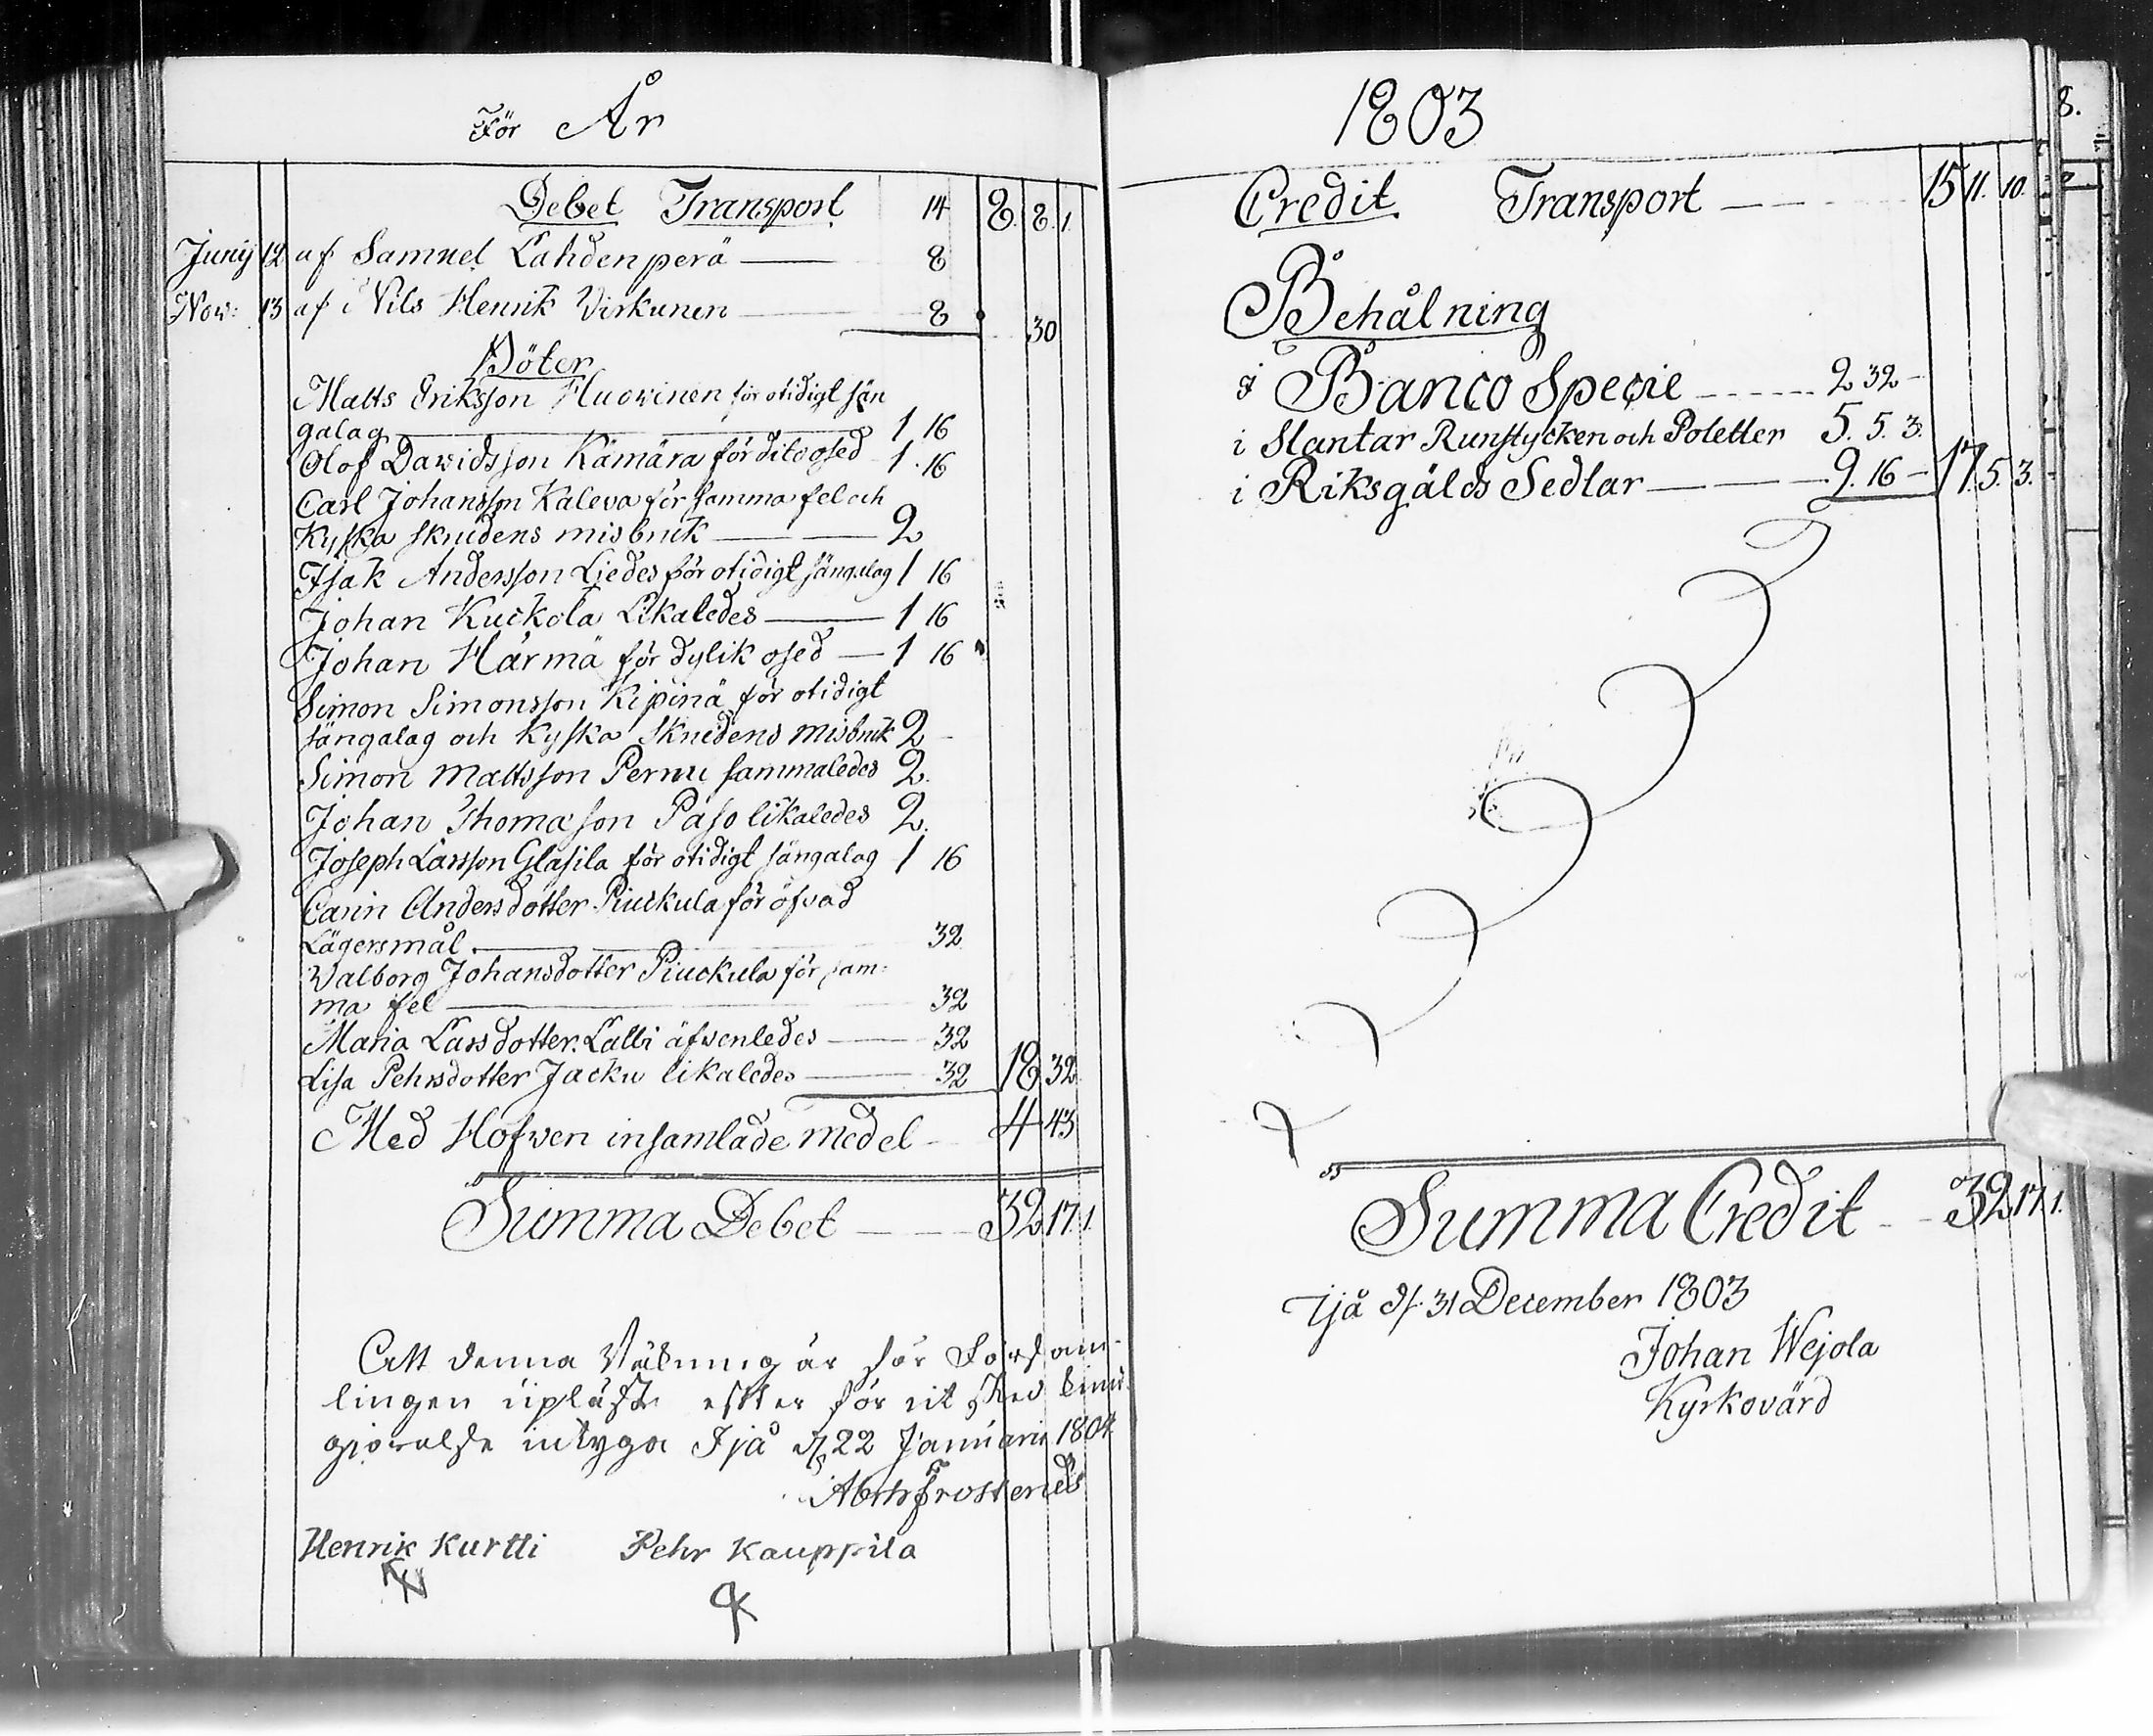 För År
Debet Transport 14 8. 8. 1.
Junij 12 af Samuel Lahdenperä — 8
Nov: 13 af Nils Henrik Virkunen — 8 30
Böter
Matts Eriksson Huovinen för otidigt sän
galag — 1 16
Olof Davidsson Kämärä för dito osed 1. 16
Carl Johansson Kaleva för samma fel och
Kyska skrudens misbruk — 2
Isak Andersson Liedes för otidigt sängalag 1 16
Johan Kuckola Likaledes — 1 16
Johan Härmä för dylik osed — 1 16
Simon Simonsson Kipinä för otidigt
sängalag och Kyska Skrudens misbruk 2 -
Simon Mattsson Pernu sammaledes 2.
Johan Thomasson Paso likaledes 2.
Joseph Larsson Glasila för otidigt sängalag 1 16
Carin Andersdotter Piuckula för öfvad
Lägersmål. — 32
Walborg Johansdotter Piuckula för sam:
ma fel — 32
Maria Larsdotter Lalli äfvenledes — 32
Lisa Pehrsdotter Jacku likaledes — 32 18 32
Med Hofven insamlade medel — 4 43
Summa Debet — 32. 17. 1.
Att denna Räkning är för Församlingen upläst efter förut sked kun
giörelse intygar Ijå d. 22 Januarii 1804
Abrh Frosterus
Henrik Kurtti Pehr Kauppila
1803
Credit Transport — 15 11. 10.
Behålning
i Banco Specie — 2 32 -
i Slantar Runstycken och Poletter 5. 5. 3.
i Riksgälds Sedlar — 9. 16 - 17. 5. 3.
Summa Credit — 32 17 1.
Ijå d. 31 December 1803
Johan Wejola
Kyrkovärd
8.